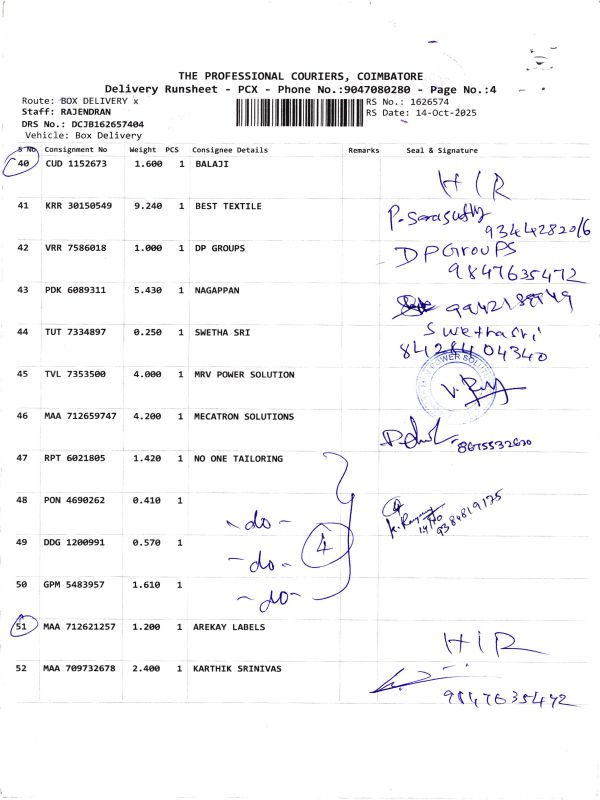 THE PROFESSIONAL COURIERS, COIMBATORE
Delivery Runsheet - PCX - Phone No.:9047080280 - Page No.:4
Route: BOX DELIVERY x
Staff: RAJENDRAN
DRS No.: DCJB162657404
Vehicle: Box Delivery
RS No.: 1626574
RS Date: 14-Oct-2025
S No Consignment No Weight PCS Consignee Details Remarks Seal & Signature
40 CUD 1152673 1.600 1 BALAJI HIR
41 KRR 30150549 9.240 1 BEST TEXTILE
9344282016
42 VRR 7586018 1.000 1 DP GROUPS DP GrouPS
9847635472
43 PDK 6089311 5.430 1 NAGAPPAN
44 TUT 7334897 0.250 1 SWETHA SRI Swethasri
8428404340
45 TVL 7353500 4.000 1 MRV POWER SOLUTION POWER SOLUTION
46 MAA 712659747 4.200 1 MECATRON SOLUTIONS
8675532630
47 RPT 6021805 1.420 1 NO ONE TAILORING
48 PON 4690262 0.410 1 -do-
9384819175
49 DDG 1200991 0.570 1 -do- 4
50 GPM 5483957 1.610 1 -do-
51 MAA 712621257 1.200 1 AREKAY LABELS HIR
52 MAA 709732678 2.400 1 KARTHIK SRINIVAS
9847635472